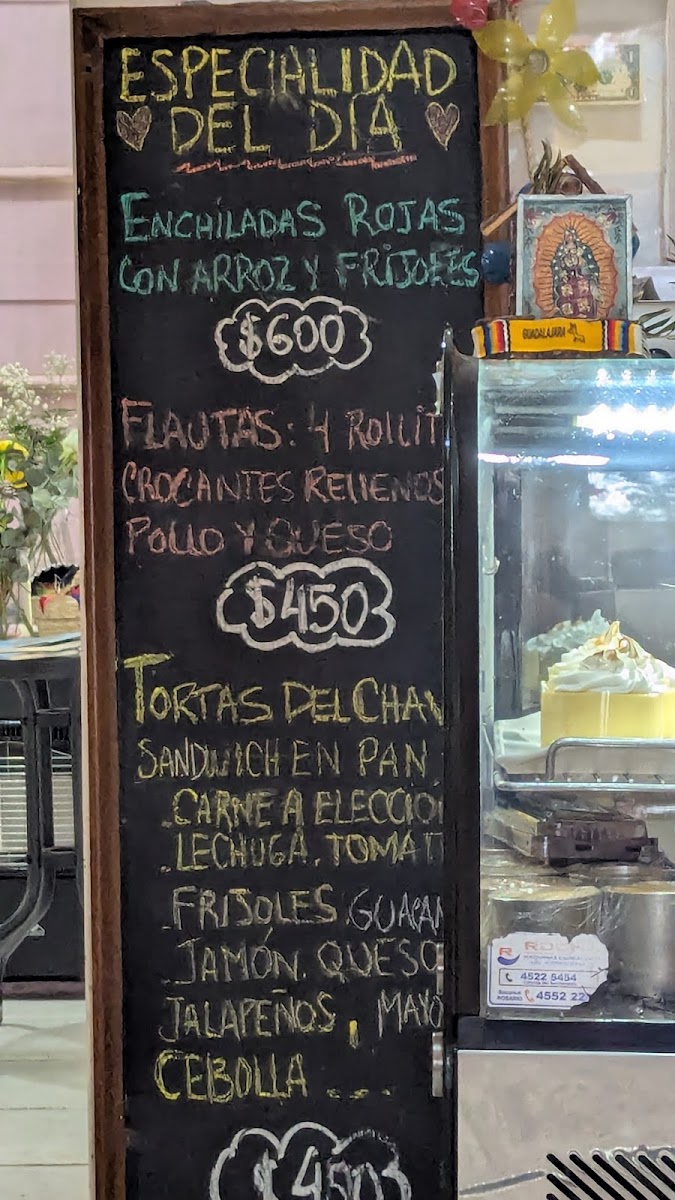 ESPECIALIDAD
DEL DÍA
ENCHILADAS ROJAS
CON ARROZ Y FRIJOLES
$600
FLAUTAS: 4 ROLLIT
CROCANTES RELLENOS
POLLO Y QUESO
$450
TORTAS DEL CHAV
SANDWICH EN PAN
.CARNE A ELECCIO
.LECHUGA. TOMAT
.FRIJOLES .GUACAM
.JAMÓN. QUESO
JALAPEÑOS, MAYO
CEBOLLA ...
$450
GUADALAJARA
4522 5454
ROSARIO
4552 22